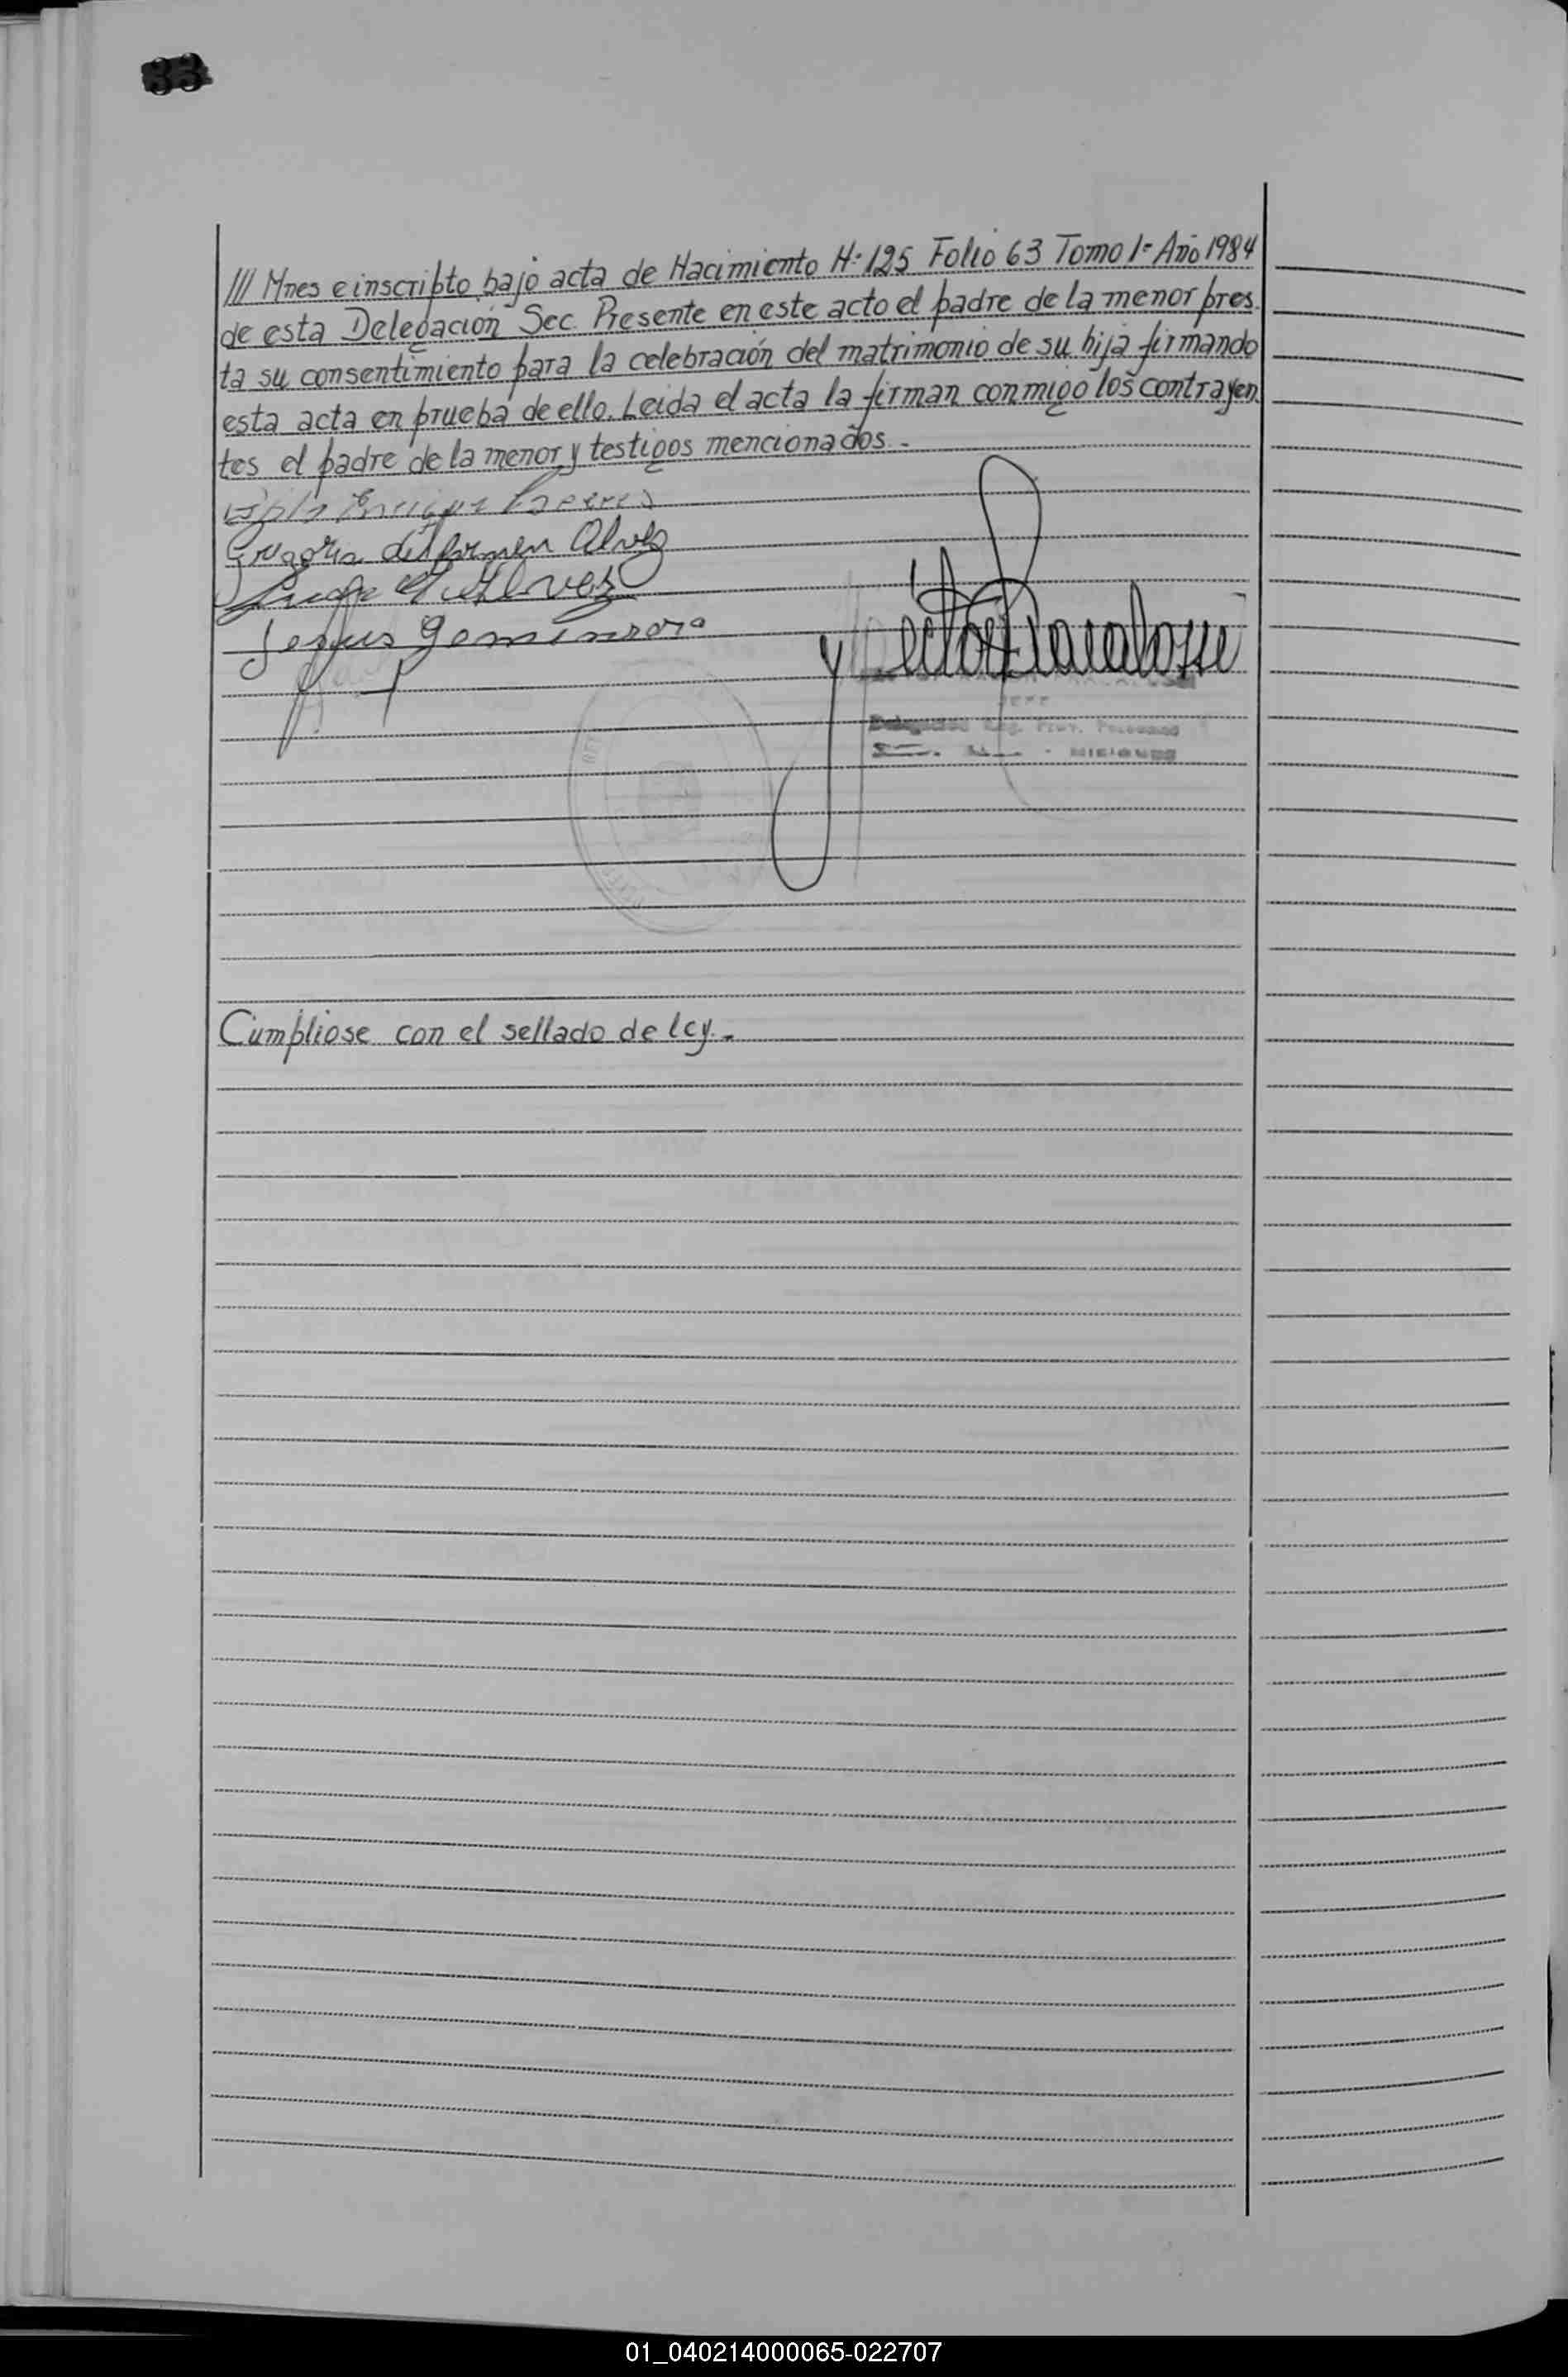 33
/// Mnes e inscripto bajo acta de Nacimiento Nº 125 Folio 63 Tomo 1º Año 1984
de esta Delegación Sec. Presente en este acto el padre de la menor pres
ta su consentimiento para la celebración del matrimonio de su hija firmando
esta acta en prueba de ello. Leida el acta la firman conmigo los contrayen
tes el padre de la menor y testigos mencionados.-
Enrique
del Carmen Alvez
Alvez
Jesus
Cumpliose con el sellado de ley.-
01_040214000065-022707